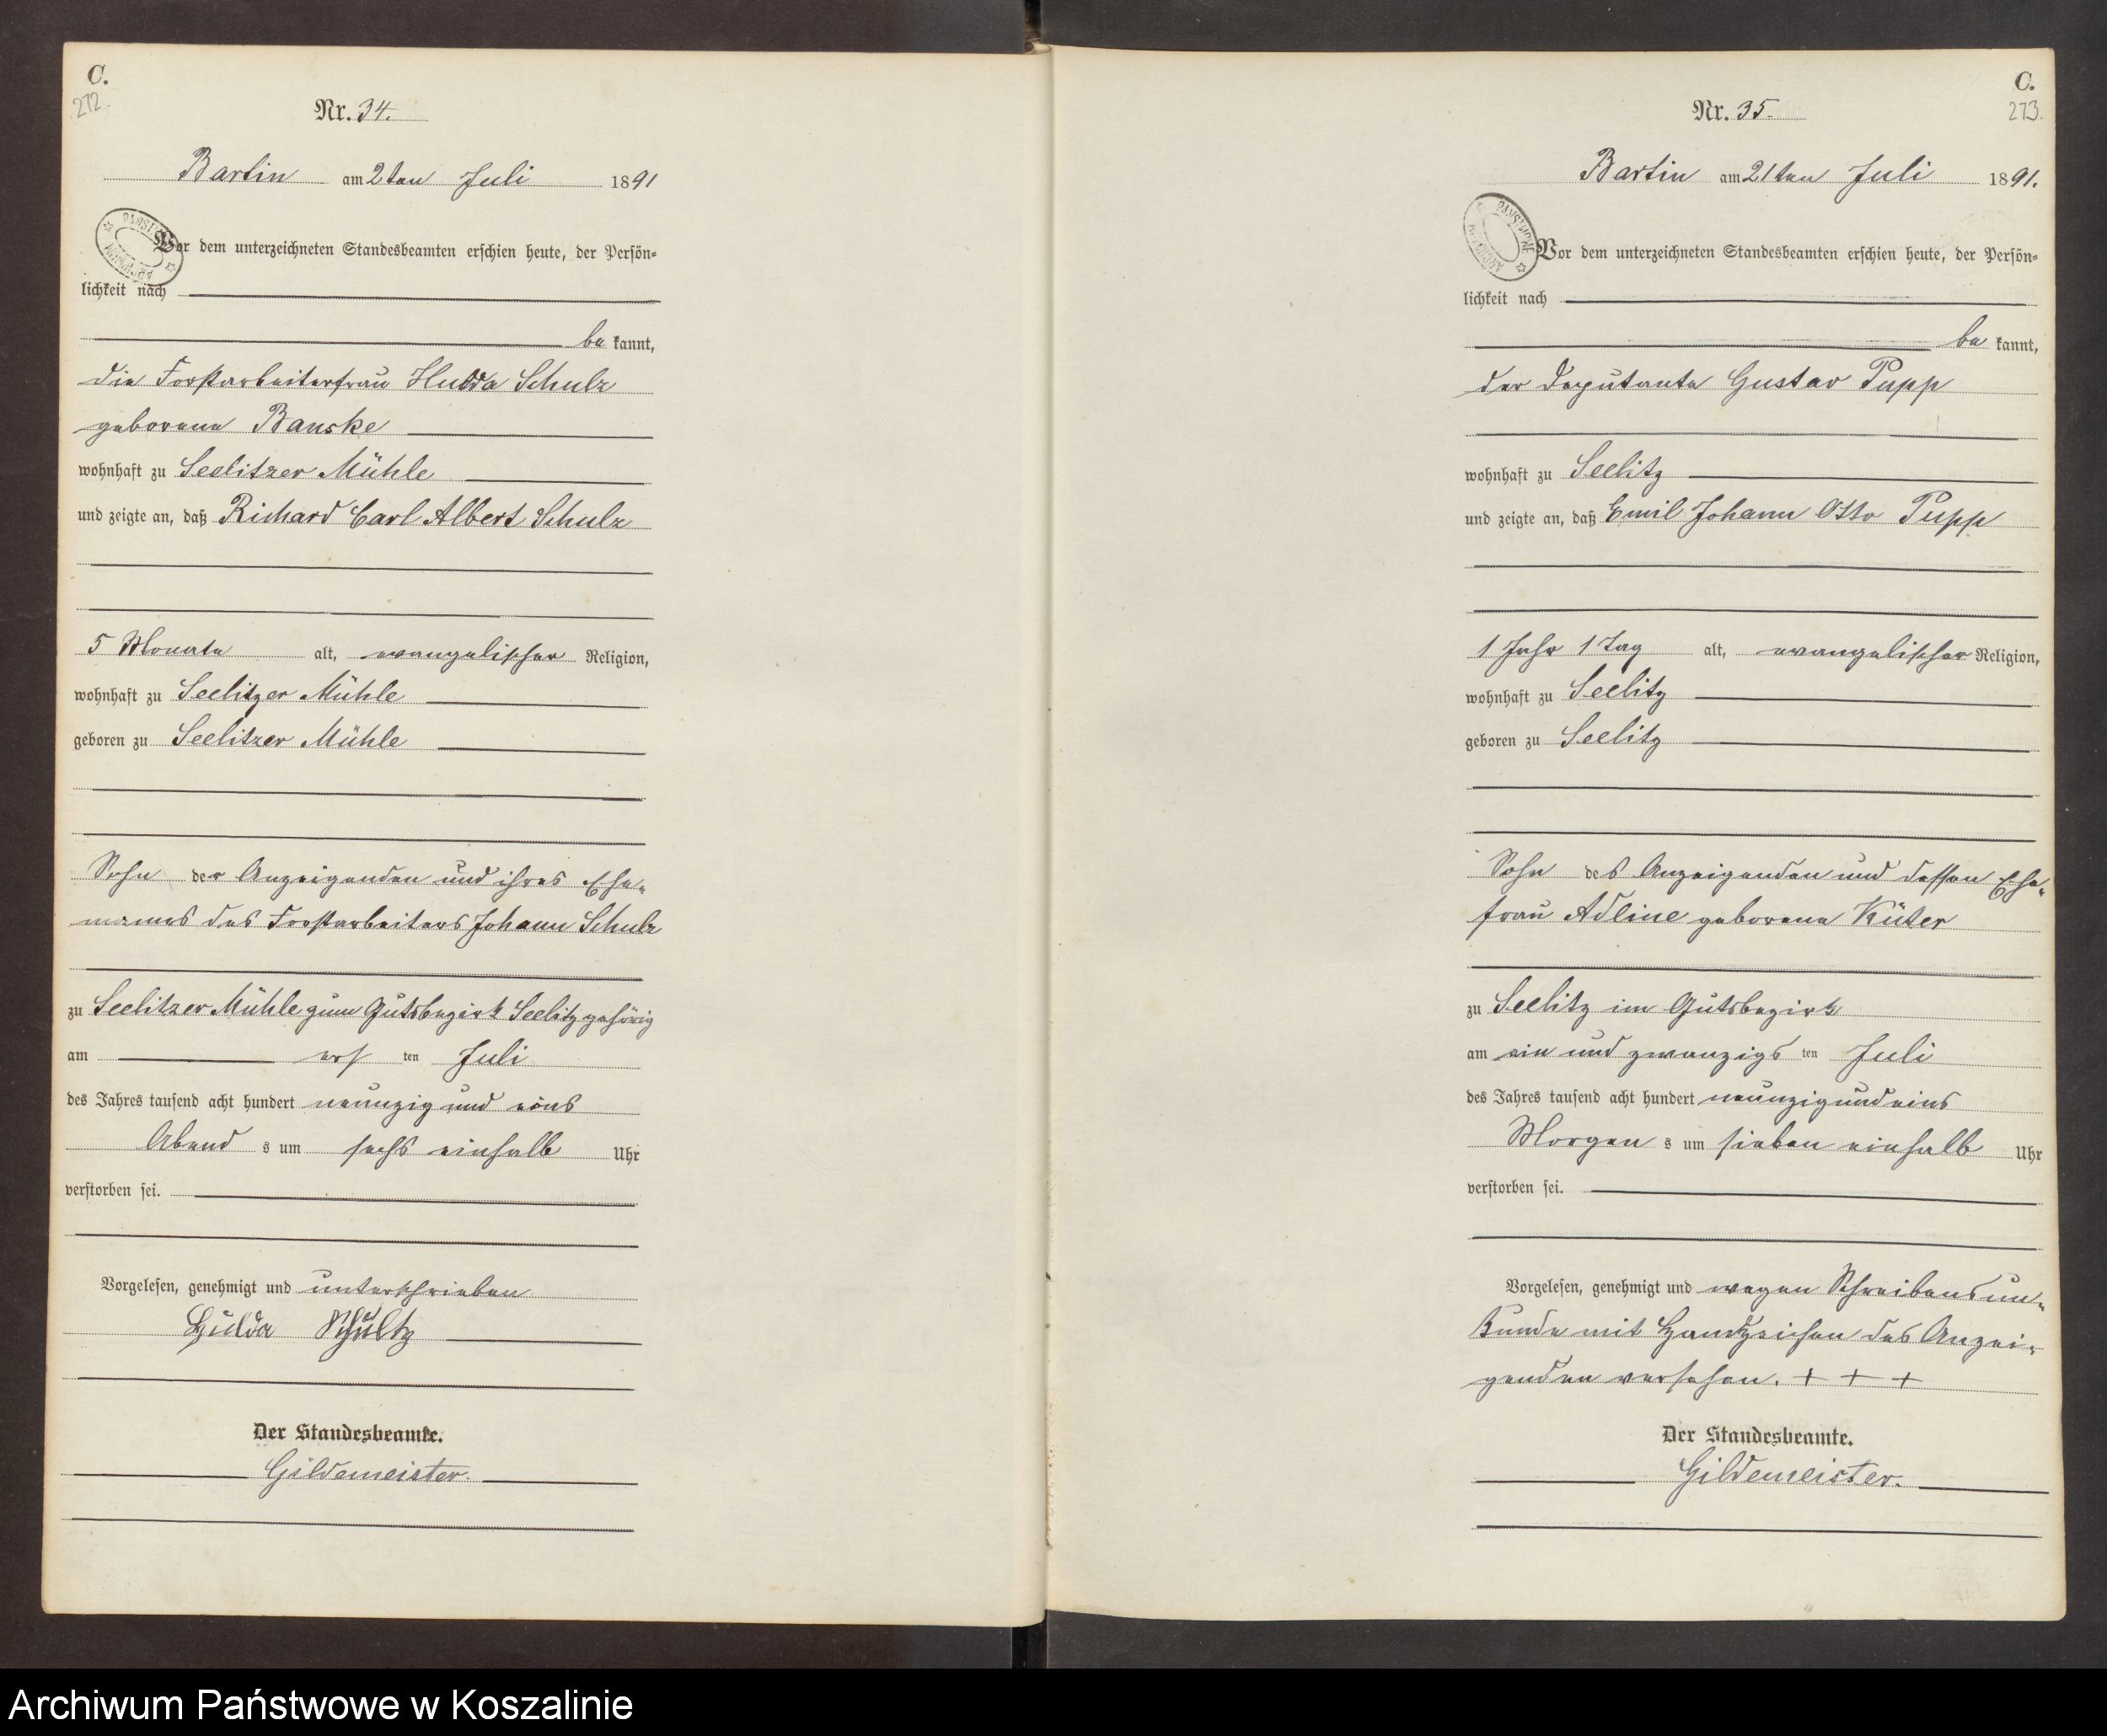 C.
272.
Nr. 34.
Bartin am 2ten Juli 1891
Vor dem unterzeichneten Standesbeamten erschien heute, der Persön-
lichkeit nach
be kannt,
die Forstarbeiterfrau Hulda Schulz
geborene Banske
wohnhaft zu Seelitzer Mühle
und zeigte an, daß Richard Carl Albert Schulz
5 Monate alt, evangelischer Religion,
wohnhaft zu Seelitzer Mühle
geboren zu Seelitzer Mühle
Sohn der Anzeigenden und ihres Ehe-
mannes des Forstarbeiters Johann Schulz
zu Seelitzer Mühle zum Gutsbezirk Seelitz gehörig
am ersten Juli
des Jahres tausend acht hundert neunzig und eins
Abends um sechs einhalb Uhr
verstorben sei.
Vorgelesen, genehmigt und unterschrieben
Hulda Schultz
Der Standesbeamte.
Gildemeister.
C.
273.
Nr. 35.
Bartin am 21ten Juli 1891.
Vor dem unterzeichneten Standesbeamten erschien heute, der Persön-
lichkeit nach
be kannt,
der Deputante Gustav Pupp
wohnhaft zu Seelitz
und zeigte an, daß Emil Johann Otto Pupp
1 Jahr 1 Tag alt, evangelischer Religion,
wohnhaft zu Seelitz
geboren zu Seelitz
Sohn des Anzeigenden und dessen Ehe-
frau Adline geborene Küter
zu Seelitz im Gutsbezirk
am ein und zwanzigsten Juli
des Jahres tausend acht hundert neunzig und eins
Morgens um sieben einhalb Uhr
verstorben sei.
Vorgelesen, genehmigt und wegen Schreibensun-
kunde mit Handzeichen des Anzei-
genden versehen. + + +
Der Standesbeamte.
Gildemeister.
Archiwum Państwowe w Koszalinie